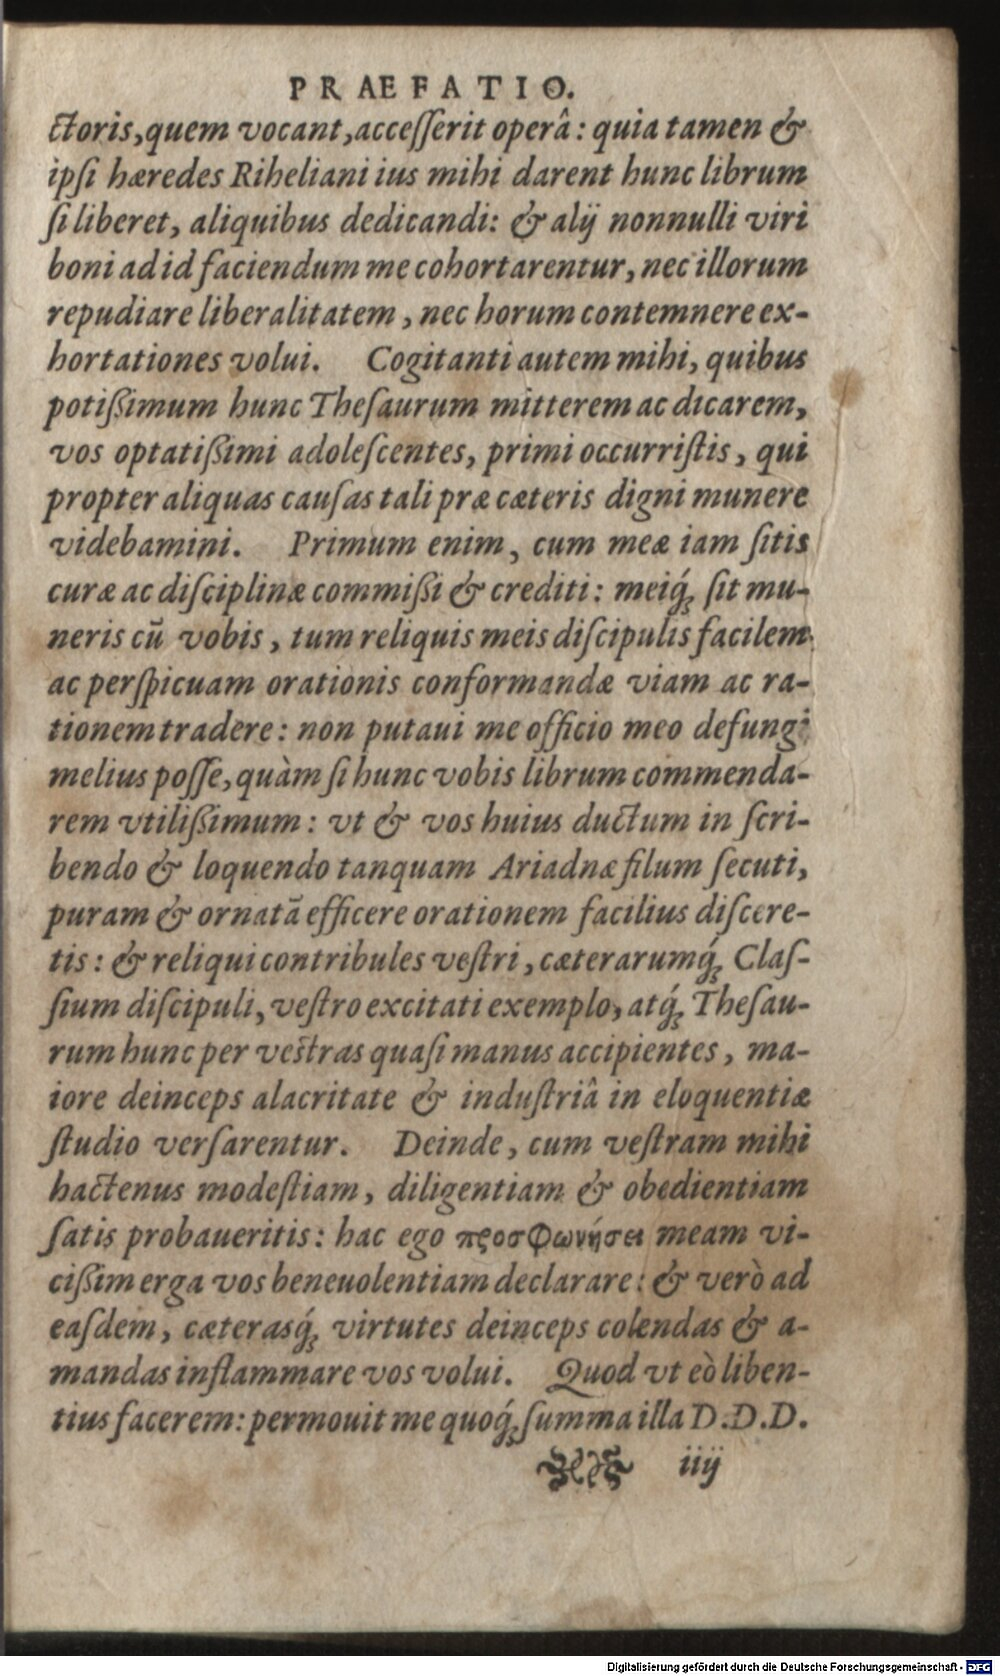 PRAEFATIO.
ctoris, quem vocant, accesſerit operâ: quia tamen &
ipſi hæredes Riheliani ius mihi darent hunc librum
ſi liberet, aliquibus dedicandi: & alij nonnulli viri
boni ad id faciendum me cohortarentur, nec illorum
repudiare liberalitatem, nec horum contemnere ex-
hortationes volui. Cogitanti autem mihi, quibus
potißimum hunc Theſaurum mitterem ac dicarem,
vos optatißimi adoleſcentes, primi occurriſtis, qui
propter aliquas cauſas tali præ cæteris digni munere
videbamini. Primum enim, cum meæ iam ſitis
curæ ac diſciplinæ commißi & crediti: meiq́ꝫ ſit mu-
neris cũ vobis, tum reliquis meis diſcipulis facilem
ac perſpicuam orationis conformandæ viam ac ra-
tionem tradere: non putaui me officio meo defungi
melius poſſe, quàm ſi hunc vobis librum commenda-
rem vtilißimum: vt & vos huius ductum in ſcri-
bendo & loquendo tanquam Ariadnæ filum ſecuti,
puram & ornatã efficere orationem facilius diſcere-
tis: & reliqui contribules veſtri, cæterarumq́ꝫ Claſ-
ſium diſcipuli, veſtro excitati exemplo, atq́ꝫ Theſau-
rum hunc per veſtras quaſi manus accipientes, ma-
iore deinceps alacritate & induſtriâ in eloquentiæ
ſtudio verſarentur. Deinde, cum veſtram mihi
hactenus modeſtiam, diligentiam & obedientiam
ſatis probaueritis: hac ego προσφωνήσει meam vi-
cißim erga vos beneuolentiam declarare: & verò ad
eaſdem, cæterasq́ꝫ virtutes deinceps colendas & a-
mandas inflammare vos volui. Quod vt eò liben-
tius facerem: permouit me quoq́ꝫ ſumma illa D.D.D.
iiij
Digitalisierung gefördert durch die Deutsche Forschungsgemeinschaft - DFG